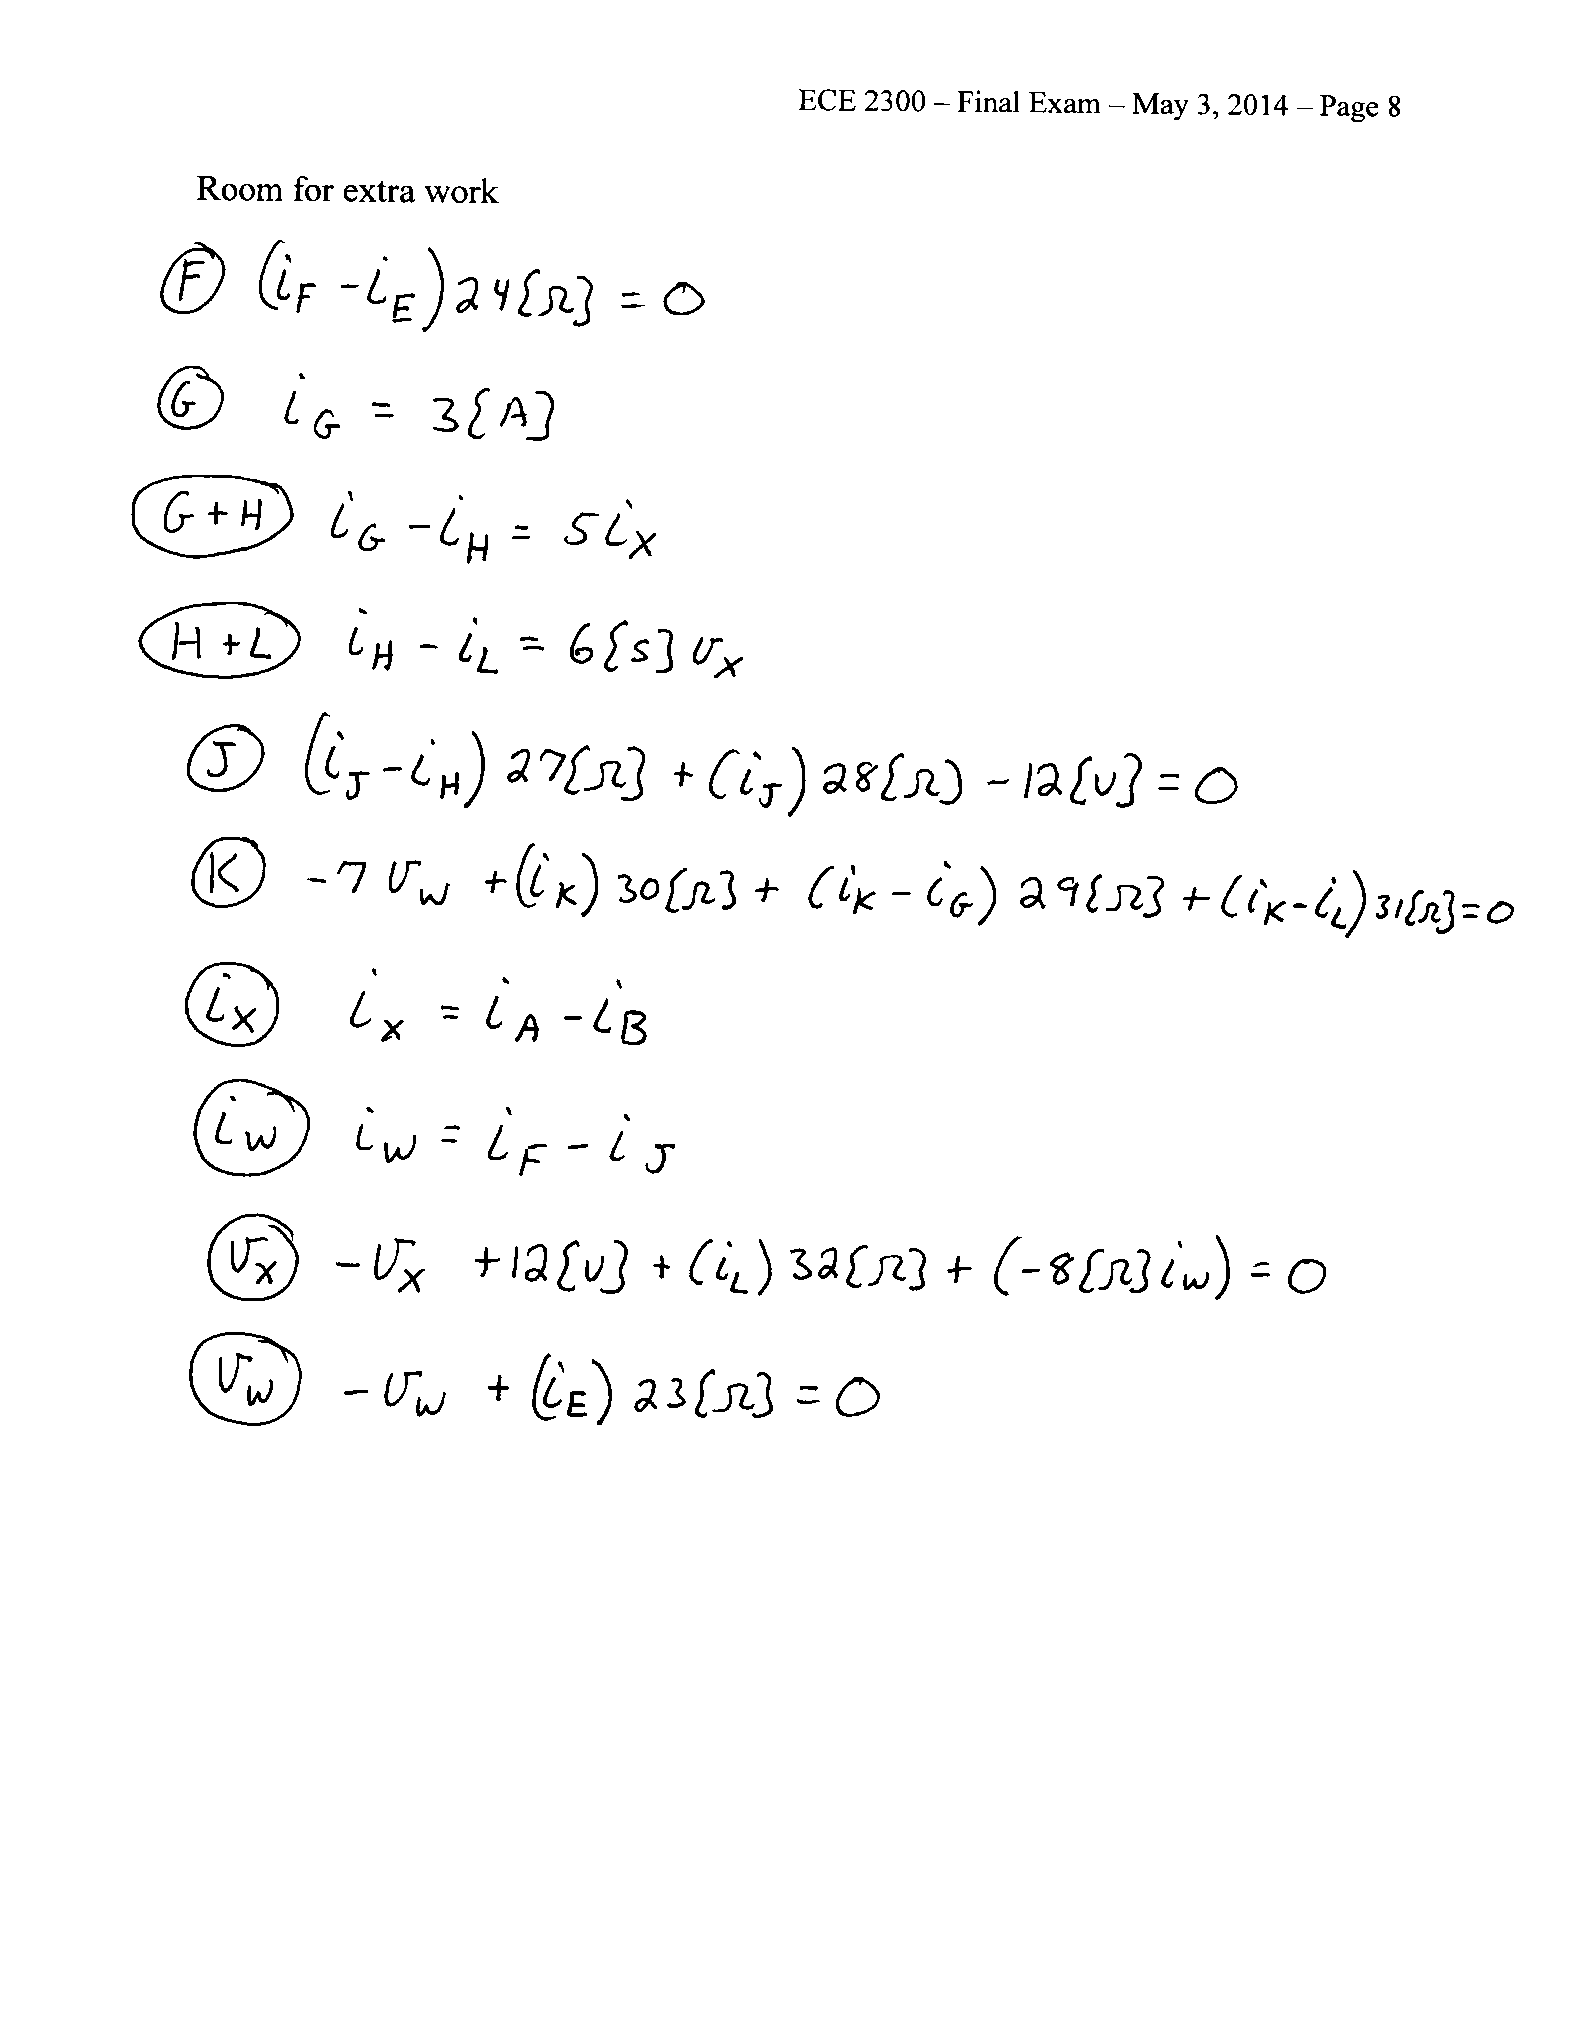 ECE 2300 – Final Exam – May 3, 2014 – Page 8
Room for extra work
F (i_F - i_E) 24{Ω} = 0
G i_G = 3{A}
G+H i_G - i_H = 5 i_X
H+L i_H - i_L = 6{S} v_X
J (i_J - i_H) 27{Ω} + (i_J) 28{Ω} - 12{V} = 0
K -7 v_W + (i_K) 30{Ω} + (i_K - i_G) 29{Ω} + (i_K - i_L) 31{Ω} = 0
i_X i_X = i_A - i_B
i_W i_W = i_F - i_J
v_X -v_X + 12{V} + (i_L) 32{Ω} + (-8{Ω} i_W) = 0
v_W -v_W + (i_E) 23{Ω} = 0